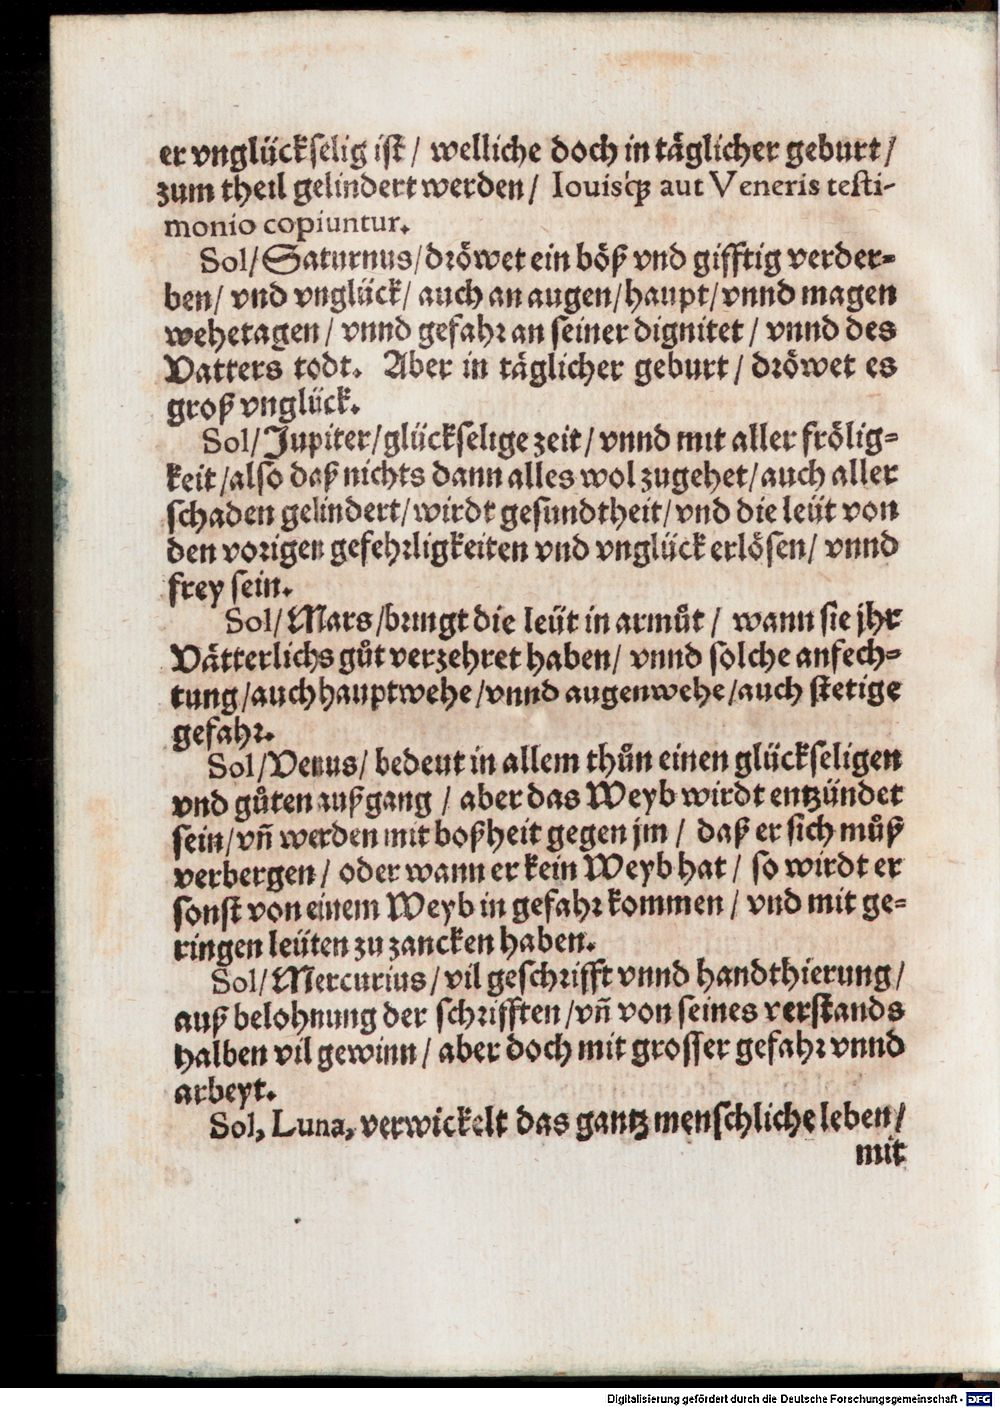 er vnglückselig ist / welliche doch in täglicher geburt /
zum theil gelindert werden / Iouisq́ꝫ aut Veneris testi-
monio copiuntur.
Sol / Saturnus / dröwet ein böß vnd gifftig verder-
ben / vnd vnglück / auch an augen / haupt / vnnd magen
wehetagen / vnnd gefahr an seiner dignitet / vnnd des
Vatters todt. Aber in täglicher geburt / dröwet es
groß vnglück.
Sol / Jupiter / glückselige zeit / vnnd mit aller frölig-
keit / also daß nichts dann alles wol zugehet / auch aller
schaden gelindert / wirdt gesundtheit / vnd die leüt von
den vorigen gefehrligkeiten vnd vnglück erlösen / vnnd
frey sein.
Sol / Mars / bringt die leüt in armůt / wann sie jhr
Vätterlichs gůt verzehret haben / vnnd solche anfech-
tung / auch hauptwehe / vnnd augenwehe / auch stetige
gefahr.
Sol / Venus / bedeut in allem thůn einen glückseligen
vnd gůten außgang / aber das Weyb wirdt entzündet
sein / vñ werden mit boßheit gegen jm / daß er sich můß
verbergen / oder wann er kein Weyb hat / so wirdt er
sonst von einem Weyb in gefahr kommen / vnd mit ge-
ringen leüten zu zancken haben.
Sol / Mercurius / vil geschrifft vnnd handthierung /
auß belohnung der schrifften / vñ von seines verstands
halben vil gewinn / aber doch mit grosser gefahr vnnd
arbeyt.
Sol, Luna, verwickelt das gantz menschliche leben /
mit
Digitalisierung gefördert durch die Deutsche Forschungsgemeinschaft - DFG